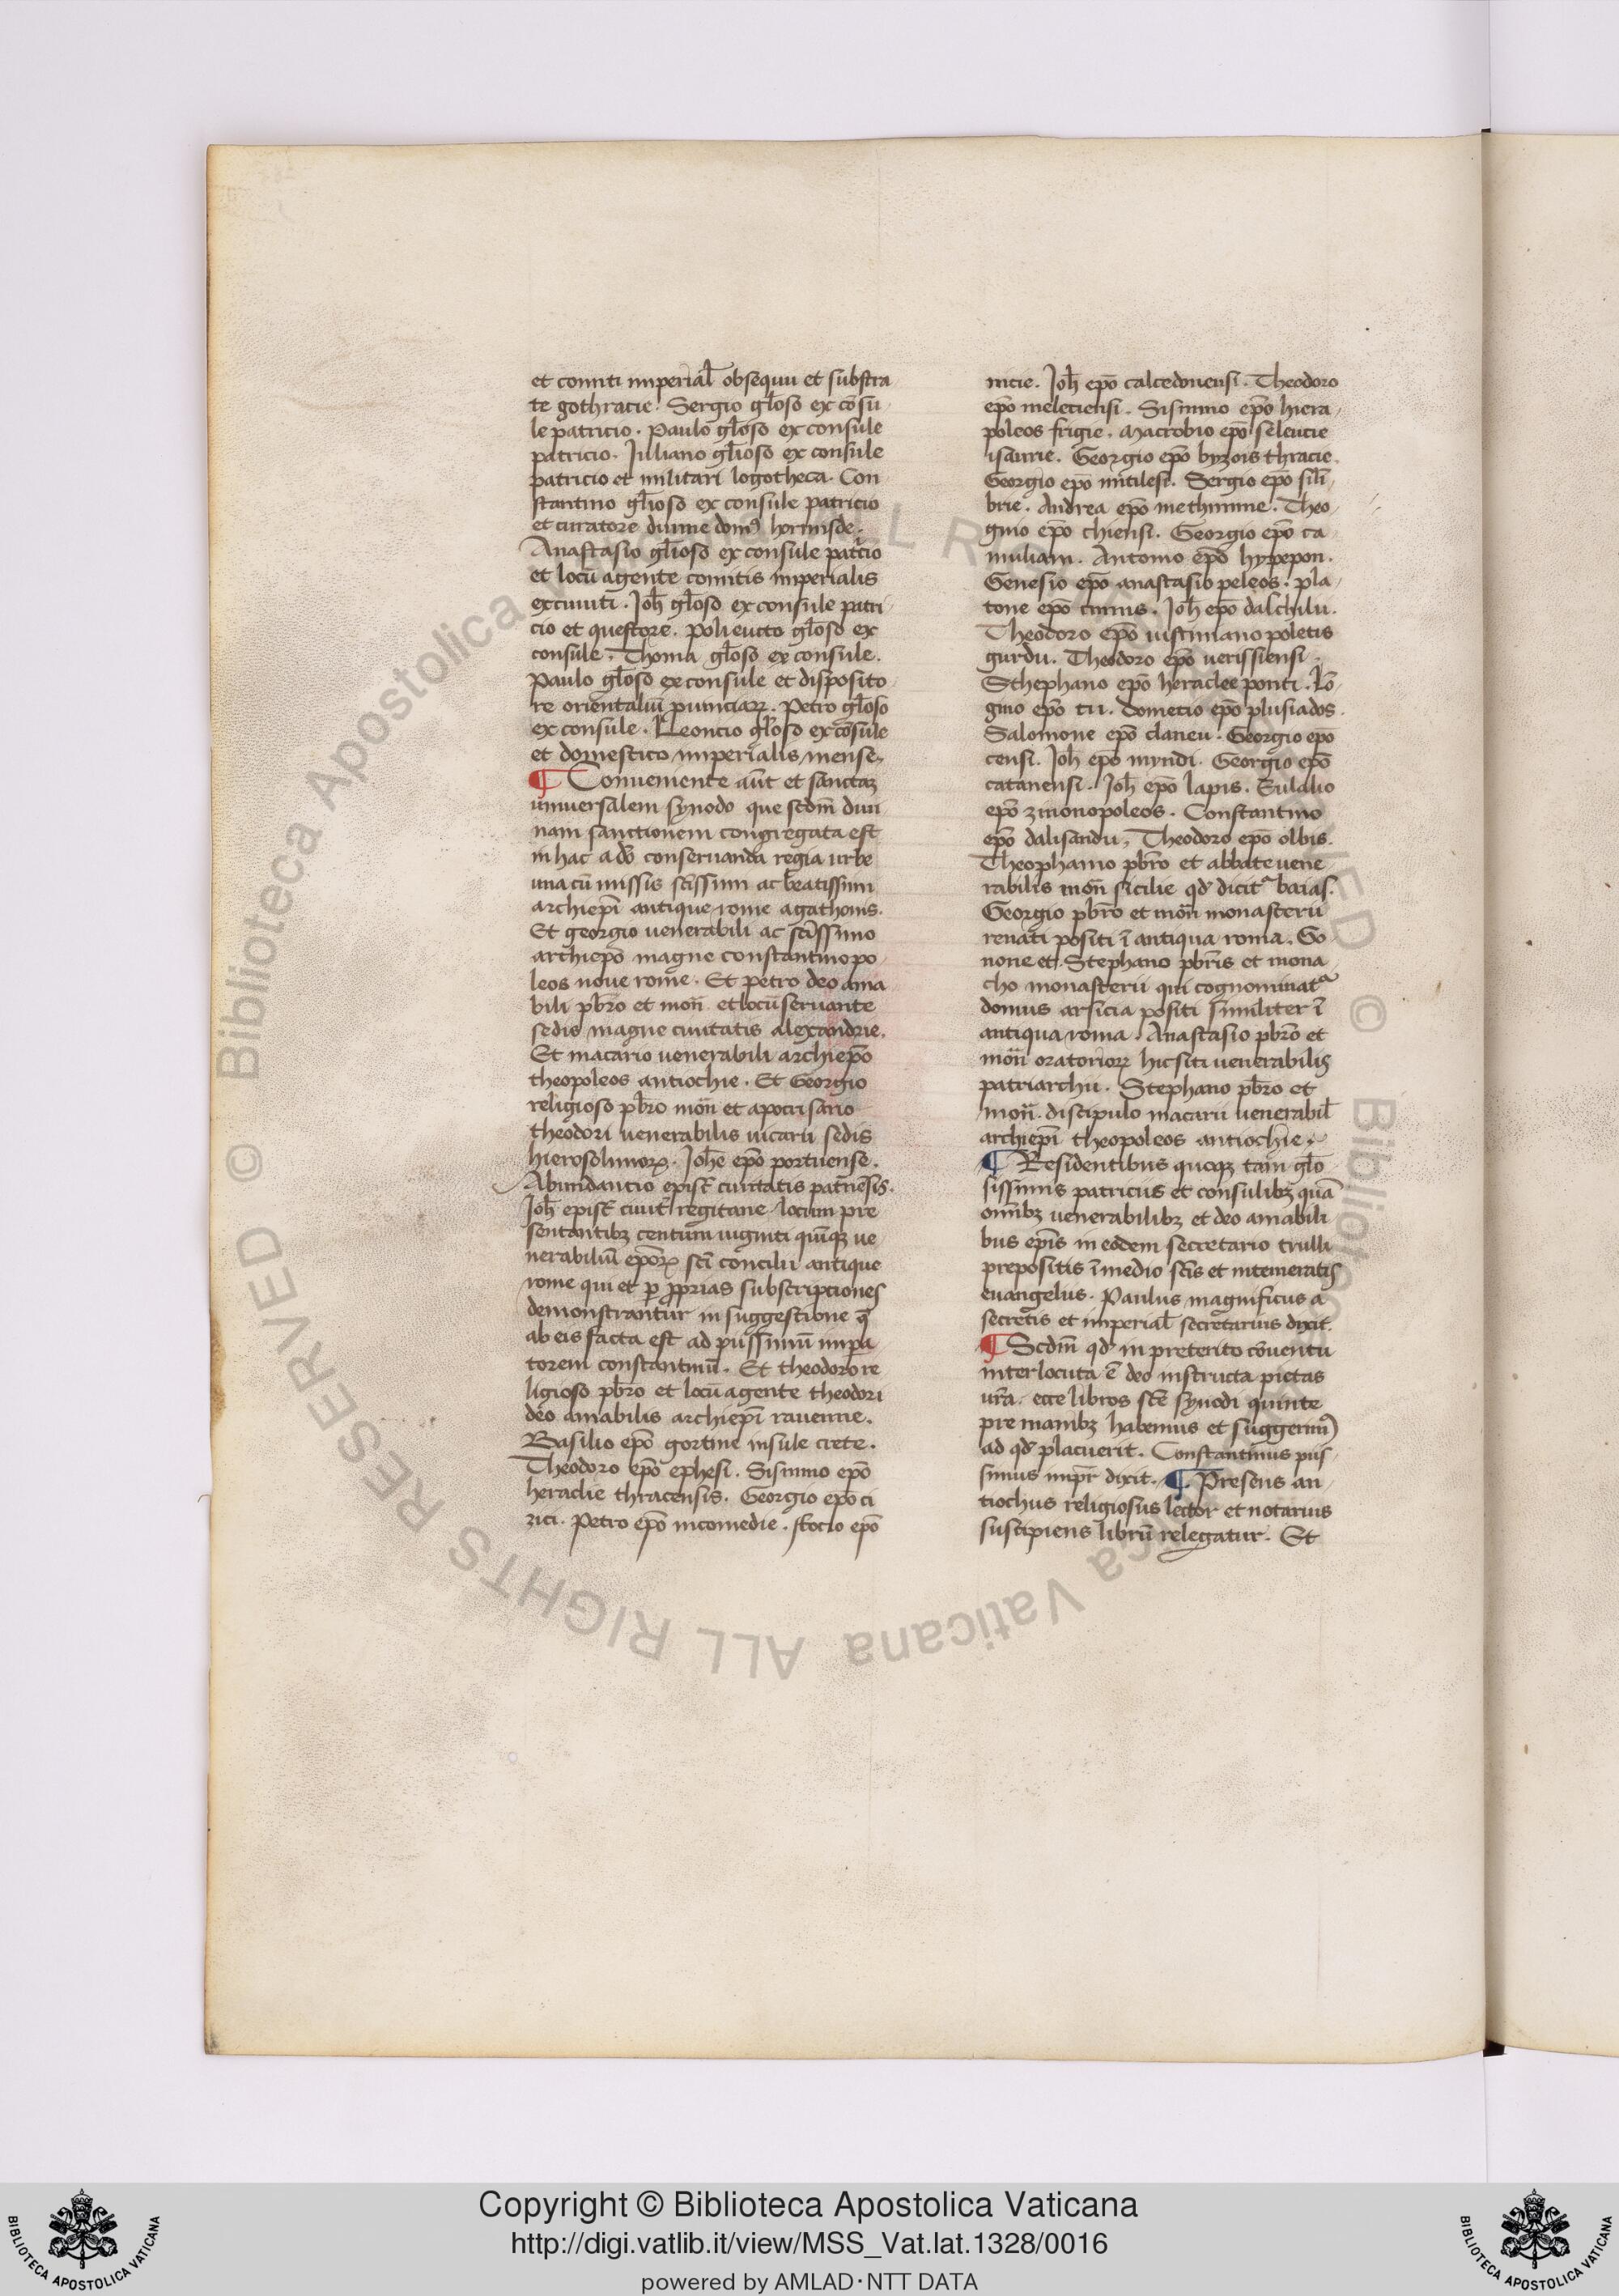 et comiti imperial̄ obsequii et substra
te gothracie. Sergio gl̄oso ex cōsu
le patricio. Paulo gl̄oso ex consule
patricio. Iuliano gl̄ioso ex consule
patricio et militari logotheca. Con
stantino gl̄ioso ex consule patricio
et curatore diuine domꝰ hormisde.
Anastasio gl̄ioso ex consule patͥcio
et locū agente comitis imperialis
excuuiti. Joh̄ gl̄oso ex consule patri
cio et questore. Polieucto gl̄oso ex
consule. Thoma gl̄oso ex consule.
Paulo gl̄oso ex consule et disposito
re orientaliū ꝓuinciaꝝ. Petro gl̄oso
ex consule. Leoncio gl̄oso ex cōsule
et domestico imperialis mense.
¶ Conueniente aūt et sanctaꝫ
uniuersalem synodo que scdm̄ diui
nam sanctionem congregata est
in hac a dō conseruanda regia urbe
una cū missis sc̄issim ac beatissim
archiepī antique rome agathonis.
Et georgio uenerabili ac sc̄issimo
archiepō magne constantinopo
leos noue rome. Et petro deo ama
bili pb̄ro et mon̄ et locū seruante
sedis magne ciuitatis alexandrie.
Et macario uenerabili archiepō
theopoleos antiochie. Et Georgio
religioso pb̄ro mon̄ et apocrisario
theodori uenerabilis uicarii sedis
hierosolimoꝝ. Joh̄e epō portuense.
Abundantio epist̄ ciuitatis pat̄nēsis.
Joh̄ epist̄ ciuit̄ regitane locum pre
sentantibꝫ centum uiginti quīqꝫ ue
nerabiliū epōꝝ sc̄i concilii antique
rome qui et ꝑ ꝓprias subscriptiones
demonstrantur in suggestione q̄
ab eis facta est ad piissimū impa
torem constantinū. Et theodoro re
ligioso pb̄ro et locū agente theodori
deo amabilis archiepī rauenne.
Basilio epō gortine insule crete.
Theodoro epō ephesi. Sisinnio epō
heraclie thracensis. Georgio epo ci
zici. Petro epō nicomedie. ffocio epō
nicie. Joh̄ epō calcedonensi. Theodoro
epō meleciensi. Sisinnio epō hiera
poleos frigie. Macrobio epō seleucie
isaurie. Georgio epō byzois thracie.
Georgio epō mitilesi. Sergio epō sili
brie. Andrea epō methimne. Theo
gnio epō chiensi. Georgio epō ca
muliam. Antonio epō hypepon.
Genesio epō anastasiopeleos. Pla
tone epō cinnis. Joh̄ epō dalchilu.
Theodoro epō iustinianopoletis
gurdu. Theodoro epō uerissiensi.
Sthephano epō heraclee ponti. Lō
gino epō tii. Dometio epō plusiados.
Salomone epō claneu. Georgio epo
censi. Joh̄ epō myndi. Georgio epō
catanensi. Joh̄ epō lapis. Eulalio
epō zinonopoleos. Constantino
epō dalisandu. Theodoro epō olbis.
Theophanio pb̄ro et abbate uene
rabilis mon̄ sicilie qd̓ dicit᷑ baias.
Georgio pb̄ro et mon̄ monasterii
renati positi ī antiqua roma. Go
none et Stephano pb̄ris et mona
cho monasterii qui cognominat᷑
domus arsicia positi similiter ī
antiqua roma. Anastasio pb̄ro et
mon̄ oratorioꝝ hic siti uenerabilis
patriarchii. Stephano pb̄ro et
mon̄. discipulo macarii uenerabil̄
archiepī theopoleos antiochie.
¶ Residentibus quoqꝫ tam gl̄o
sissimis patriciis et consulibꝫ quā
omībꝫ uenerabilibꝫ et deo amabili
bus epīs in eodem secretario trulli
prepositis ī medio sc̄is et intemeratis
euangeliis. Paulus magnificus a
secretis et imperial̄ secretarius dixit.
¶ Scdm̄ qd̓ in preterito cōuentu
interlocuta ē deo instructa pietas
ur̄a. ecce libros sc̄e synodi quinte
pre manibꝫ habemus et suggerimꝰ
ad qd̓ placuerit. Constantinus piis
simus impr̄ dixit. ¶ Presens an
tiochus religiosus lector et notarius
suscipiens librū relegatur. Et
Copyright © Biblioteca Apostolica Vaticana
http://digi.vatlib.it/view/MSS_Vat.lat.1328/0016
powered by AMLAD·NTT DATA
BIBLIOTECA APOSTOLICA VATICANA
BIBLIOTECA APOSTOLICA VATICANA
© Biblioteca Apostolica Vaticana ALL RIGHTS RESERVED © Biblioteca Apostolica Vaticana ALL RIGHTS RESERVED